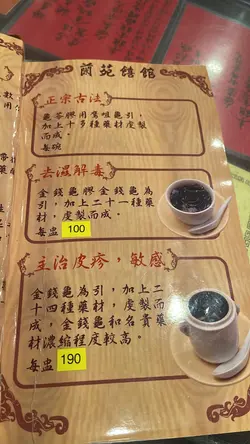 茵苑饎館
正宗古法
龜苓膠用鷹咀龜引,
加上十多種藥材虔製
而成。
每碗
去濕解毒
金錢龜膠金錢龜為
引,加上二十一種藥
材,虔製而成。
每盅 100
主治皮疹,敏感
金錢龜為引,加上二
十四種藥材,虔製而
成,金錢龜和名貴藥
材濃縮程度較高。
每盅 190